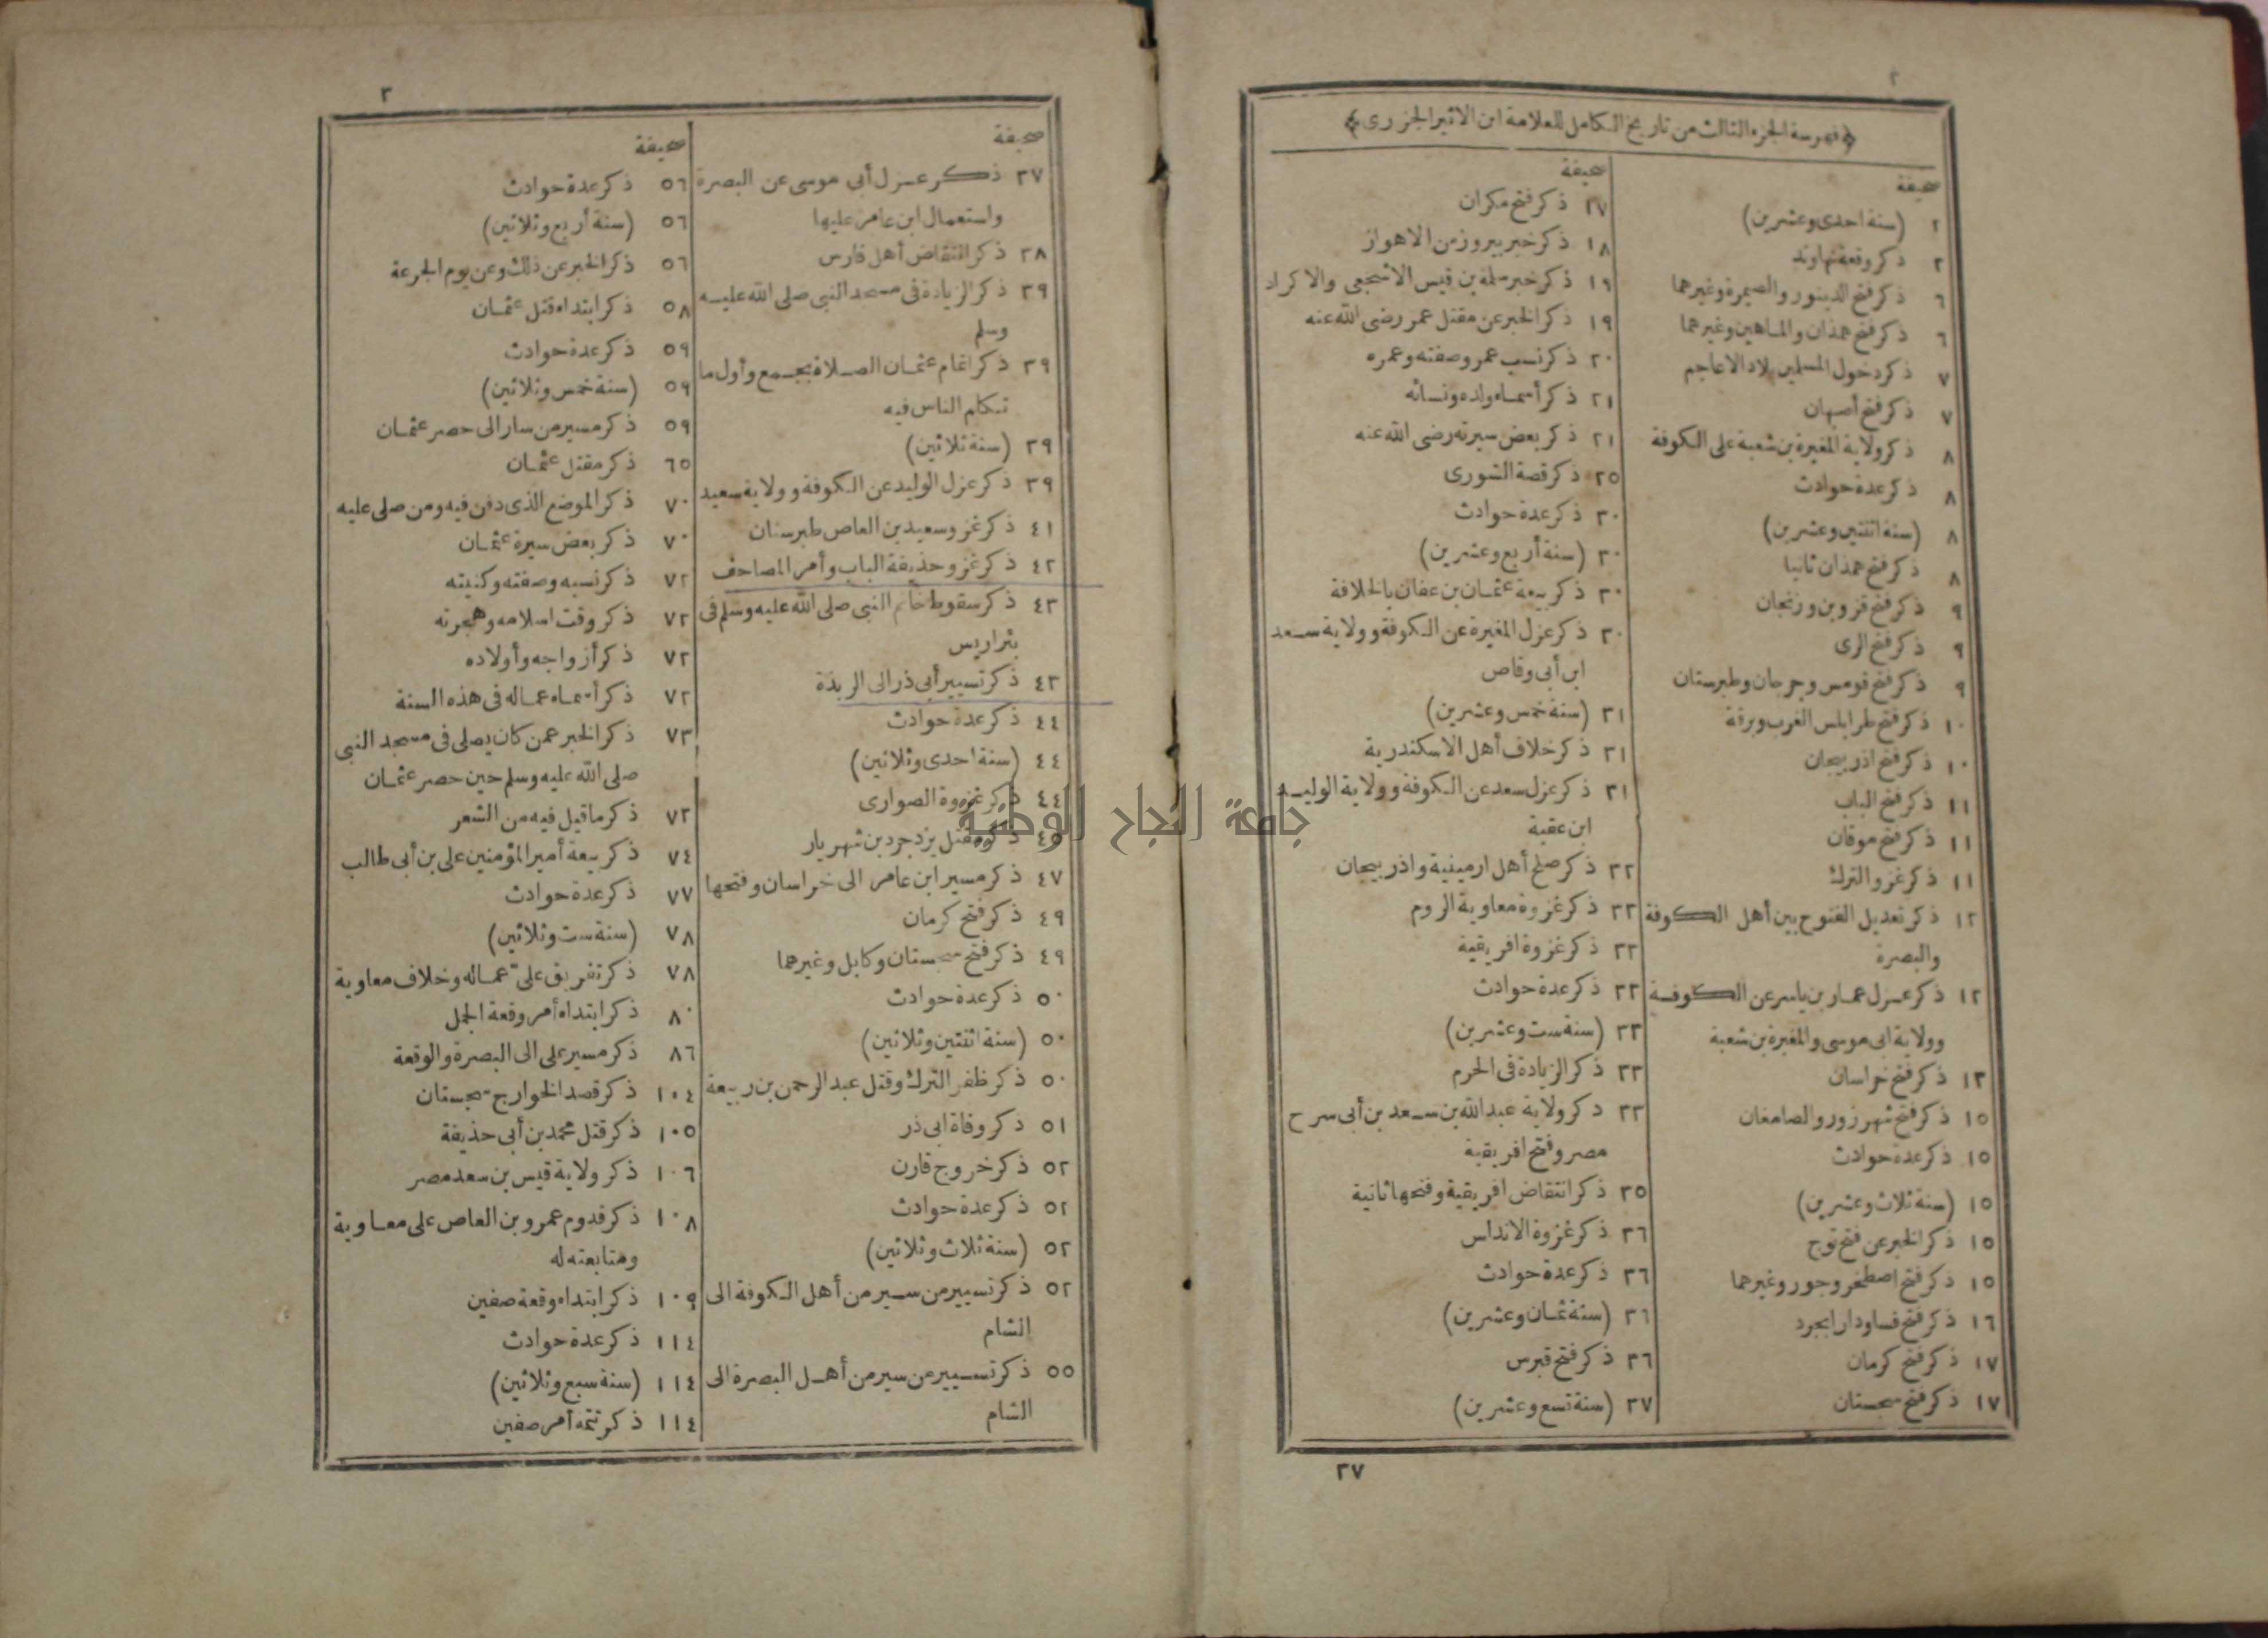 ٢
﴿فهرسة الجزء الثالث من تاريخ الكامل للعلامة ابن الاثير الجزرى﴾
صحيفة
٢ (سنة احدى وعشرين)
٢ ذكر وقعة نهاوند
٦ ذكر فتح الدينور والصيمرة وغيرهما
٦ ذكر فتح همذان والماهين وغيرهما
٧ ذكر دخول المسلمين بلاد الاعاجم
٧ ذكر فتح أصبهان
٨ ذكر ولاية المغيرة بن شعبة على الكوفة
٨ ذكر عدة حوادث
٨ (سنة اثنتين وعشرين)
٨ ذكر فتح همذان ثانيا
٩ ذكر فتح قزوين وزنجان
٩ ذكر فتح الرى
٩ ذكر فتح قومس وجرجان وطبرستان
١٠ ذكر فتح طرابلس الغرب وبرقة
١٠ ذكر فتح اذربيجان
١١ ذكر فتح الباب
١١ ذكر فتح موقان
١١ ذكر غزو الترك
١٢ ذكر تعديل الفتوح بين أهل الكوفة
والبصرة
١٢ ذكر عزل عمار بن ياسر عن الكوفة
وولاية ابى موسى والمغيرة بن شعبة
١٣ ذكر فتح خراسان
١٥ ذكر فتح شهرزور والصامغان
١٥ ذكر عدة حوادث
١٥ (سنة ثلاث وعشرين)
١٥ ذكر الخبر عن فتح توج
١٥ ذكر فتح اصطخر وجور وغيرهما
١٦ ذكر فتح فسا ودارابجرد
١٧ ذكر فتح كرمان
١٧ ذكر فتح سجستان
صحيفة
١٧ ذكر فتح مكران
١٨ ذكر خبر بيروز من الاهواز
١٩ ذكر خبر سلمة بن قيس الاشجعى والاكراد
١٩ ذكر الخبر عن مقتل عمر رضى الله عنه
٢٠ ذكر نسب عمر وصفته وعمره
٢١ ذكر أسماء ولده ونسائه
٢١ ذكر بعض سيرته رضى الله عنه
٢٥ ذكر قصة الشورى
٣٠ ذكر عدة حوادث
٣٠ (سنة أربع وعشرين)
٣٠ ذكر بيعة عثمان بن عفان بالخلافة
٣٠ ذكر عزل المغيرة عن الكوفة وولاية سعد
ابن أبى وقاص
٣١ (سنة خمس وعشرين)
٣١ ذكر خلاف أهل الاسكندرية
٣١ ذكر عزل سعد عن الكوفة وولاية الوليد
ابن عقبة
٣٢ ذكر صلح أهل ارمينية واذربيجان
٣٣ ذكر غزوة معاوية الروم
٣٣ ذكر غزوة افريقية
٣٣ ذكر عدة حوادث
٣٣ (سنة ست وعشرين)
٣٣ ذكر الزيادة فى الحرم
٣٣ ذكر ولاية عبد الله بن سعد بن أبى سرح
مصر وفتح افريقية
٣٥ ذكر انتقاض افريقية وفتحها ثانية
٣٦ ذكر غزوة الاندلس
٣٦ ذكر عدة حوادث
٣٦ (سنة ثمان وعشرين)
٣٦ ذكر فتح قبرس
٣٧ (سنة تسع وعشرين)
٣٧
٣
صحيفة
٣٧ ذكر عزل أبى موسى عن البصرة
واستعمال ابن عامر عليها
٣٨ ذكر انتقاض أهل فارس
٣٩ ذكر الزيادة فى مسجد النبى صلى الله عليه
وسلم
٣٩ ذكر اتمام عثمان الصلاة بجمع وأول ما
تكلم الناس فيه
٣٩ (سنة ثلاثين)
٣٩ ذكر عزل الوليد عن الكوفة وولاية سعيد
٤١ ذكر غزو سعيد بن العاص طبرستان
٤٢ ذكر غزو حذيفة الباب وأمر المصاحف
٤٣ ذكر سقوط خاتم النبى صلى الله عليه وسلم فى
بئر اريس
٤٣ ذكر تسيير أبى ذر الى الربذة
٤٤ ذكر عدة حوادث
٤٤ (سنة احدى وثلاثين)
٤٤ ذكر غزوة الصوارى
٤٥ ذكر مقتل يزدجرد بن شهريار
٤٧ ذكر مسير ابن عامر الى خراسان وفتحها
٤٩ ذكر فتح كرمان
٤٩ ذكر فتح سجستان وكابل وغيرهما
٥٠ ذكر عدة حوادث
٥٠ (سنة اثنتين وثلاثين)
٥٠ ذكر ظفر الترك وقتل عبد الرحمن بن ربيعة
٥١ ذكر وفاة ابى ذر
٥٢ ذكر خروج قارن
٥٢ ذكر عدة حوادث
٥٢ (سنة ثلاث وثلاثين)
٥٢ ذكر تسيير من سير من أهل الكوفة الى
الشام
٥٥ ذكر تسيير من سير من أهل البصرة الى
الشام
صحيفة
٥٦ ذكر عدة حوادث
٥٦ (سنة أربع وثلاثين)
٥٦ ذكر الخبر عن ذلك وعن يوم الجرعة
٥٨ ذكر ابتداء قتل عثمان
٥٩ ذكر عدة حوادث
٥٩ (سنة خمس وثلاثين)
٥٩ ذكر مسير من سار الى حصر عثمان
٦٥ ذكر مقتل عثمان
٧٠ ذكر الموضع الذى دفن فيه ومن صلى عليه
٧٠ ذكر بعض سيرة عثمان
٧٢ ذكر نسبه وصفته وكنيته
٧٢ ذكر وقت اسلامه وهجرته
٧٢ ذكر أزواجه وأولاده
٧٢ ذكر أسماء عماله فى هذه السنة
٧٣ ذكر الخبر عمن كان يصلى فى مسجد النبى
صلى الله عليه وسلم حين حصر عثمان
٧٣ ذكر ما قيل فيه من الشعر
٧٤ ذكر بيعة أمير المؤمنين على بن أبى طالب
٧٧ ذكر عدة حوادث
٧٨ (سنة ست وثلاثين)
٧٨ ذكر تفريق علىّ عماله وخلاف معاوية
٨٠ ذكر ابتداء أمر وقعة الجمل
٨٦ ذكر مسير على الى البصرة والوقعة
١٠٤ ذكر قصد الخوارج سجستان
١٠٥ ذكر قتل محمد بن أبى حذيفة
١٠٦ ذكر ولاية قيس بن سعد مصر
١٠٨ ذكر قدوم عمرو بن العاص على معاوية
ومتابعته له
١٠٩ ذكر ابتداء وقعة صفين
١١٤ ذكر عدة حوادث
١١٤ (سنة سبع وثلاثين)
١١٤ ذكر تتمة أمر صفين
جامعة النجاح الوطنية